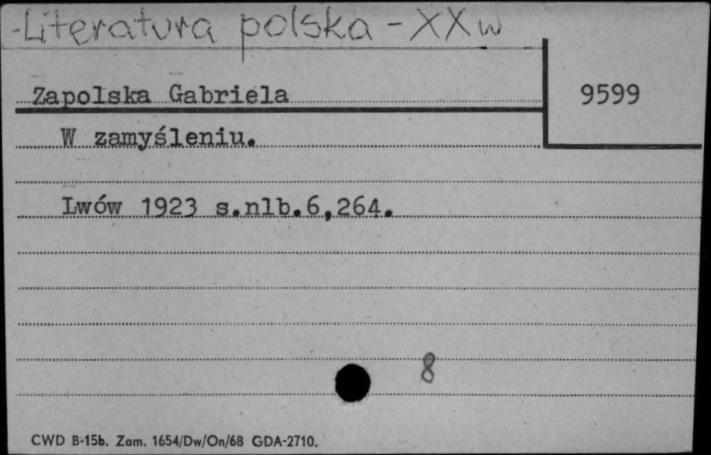 -Literatura polska - XX w
Zapolska Gabriela
9599
W zamyśleniu.
Lwów 1923 s.nlb.6,264.
8
CWD B-15b. Zam. 1654/Dw/On/68 GDA-2710.